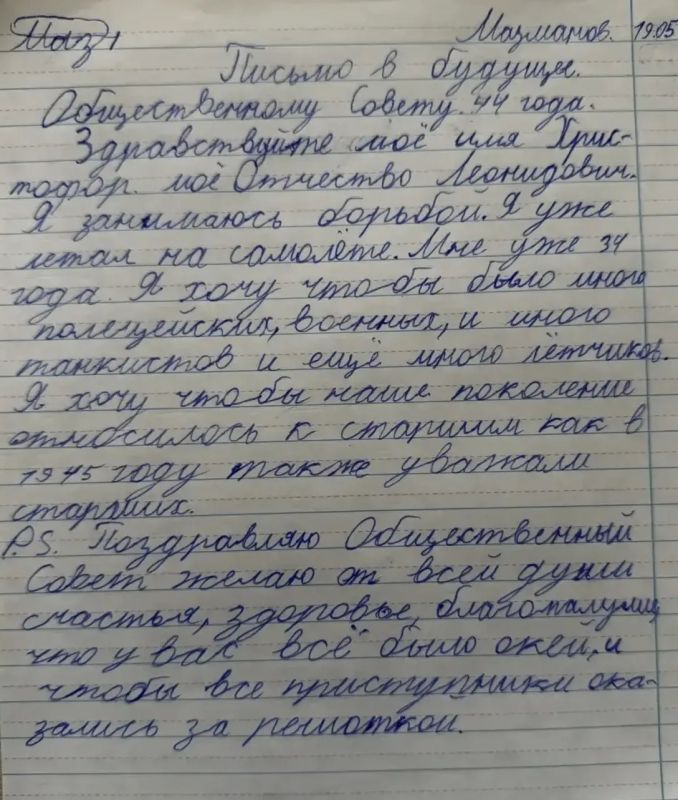 Маз 1 Мазманов. 19.05
Письмо в будущее.
Общественному Совету 44 года.
Здравствуйте моё имя Хрис-
тофор. моё Отчество Леонидович.
Я занимаюсь борьбой. Я уже
летал на самолёте. Мне уже 34
года. Я хочу чтобы было много
полецейских, военных, и много
танкистов и ещё много лётчиков.
Я хочу чтобы наше поколение
относилось к старшим как в
1945 году также уважали
старших.
P.S. Поздравляю Общественный
Совет желаю от всей души
счастья, здоровье, благопалулиц,
что у вас всё было окей, и
чтобы все приступники ока-
зались за решоткой.